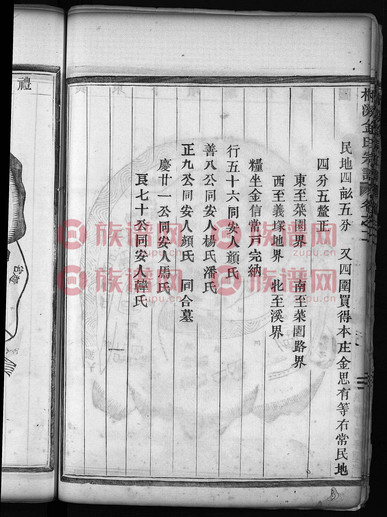 民地四畝五分 又四圍買得本庄金思有等右常民地
四分五釐正
東至菜園界 南至菜園路界
西至義塚地界 北至溪界
糧坐金信常戶完納
行五十六同安人顏氏
善八公同安人楊氏潘氏
正九公同安人顏氏 同合墓
慶廿一公同安人周氏
良七十公同安人韓氏
一
禮
族譜网